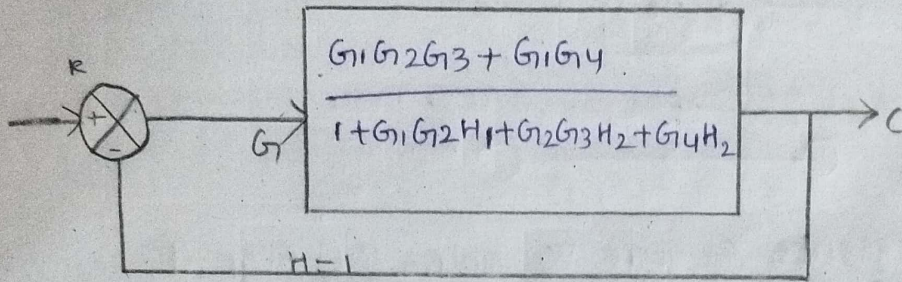 R
G1G2G3 + G1G4
1+G1G2H1+G2G3H2+G4H2
+
-
G
C
H=1